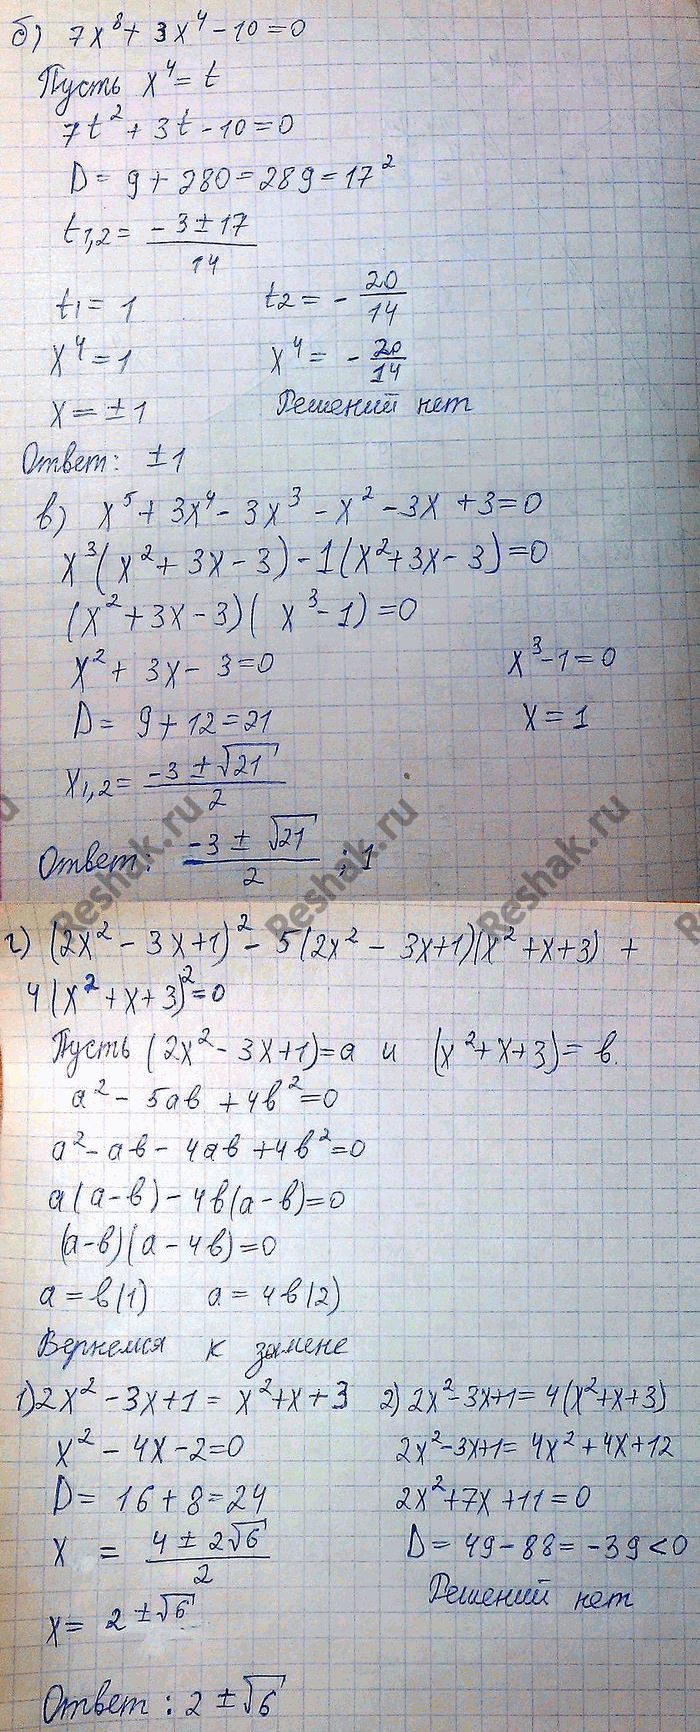 б) 7x⁸ + 3x⁴ - 10 = 0
Пусть x⁴ = t
7t² + 3t - 10 = 0
D = 9 + 280 = 289 = 17²
t₁,₂ = (-3 ± 17)/14
t₁ = 1    t₂ = -20/14
x⁴ = 1    x⁴ = -20/14
x = ±1    Решений нет
Ответ: ±1
в) x⁵ + 3x⁴ - 3x³ - x² - 3x + 3 = 0
x³(x² + 3x - 3) - 1(x² + 3x - 3) = 0
(x² + 3x - 3)(x³ - 1) = 0
x² + 3x - 3 = 0    x³ - 1 = 0
D = 9 + 12 = 21    x = 1
x₁,₂ = (-3 ± √21)/2
Ответ: (-3 ± √21)/2 ; 1
Reshak.ru Reshak.ru Reshak.ru
г) (2x² - 3x + 1)² - 5(2x² - 3x + 1)(x² + x + 3) +
4(x² + x + 3)² = 0
Пусть (2x² - 3x + 1) = a и (x² + x + 3) = в.
a² - 5aв + 4в² = 0
a² - aв - 4aв + 4в² = 0
a(a - в) - 4в(a - в) = 0
(a - в)(a - 4в) = 0
a = в (1)    a = 4в (2)
Вернемся к замене
1) 2x² - 3x + 1 = x² + x + 3    2) 2x² - 3x + 1 = 4(x² + x + 3)
x² - 4x - 2 = 0    2x² - 3x + 1 = 4x² + 4x + 12
D = 16 + 8 = 24    2x² + 7x + 11 = 0
x = (4 ± 2√6)/2    D = 49 - 88 = -39 < 0
x = 2 ± √6    Решений нет
Ответ: 2 ± √6